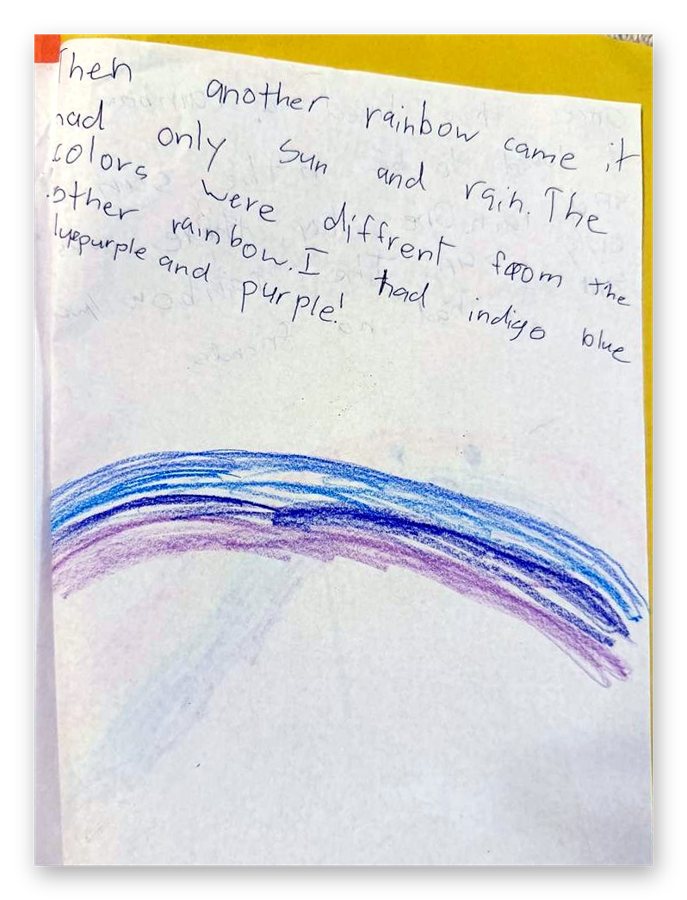 Then another rainbow came it
had only sun and rain. The
colors were diffrent from the
other rainbow. I had indigo blue
and purple!